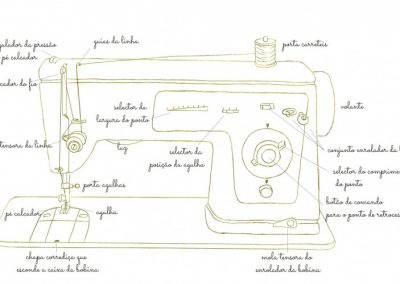 guias da linha
porta carreteis
pé calcador
da pressão
do fio
selector da
largura do ponto
volante
tensora da linha
luz
selector da
posição da agulha
conjunto enrolador da
selector do
do ponto
porta agulhas
botão de comando
para o ponto de
pé calcador
agulha
chapa corrediça que
esconde a caixa da bobina
mola tensora do
enrolador da bobina